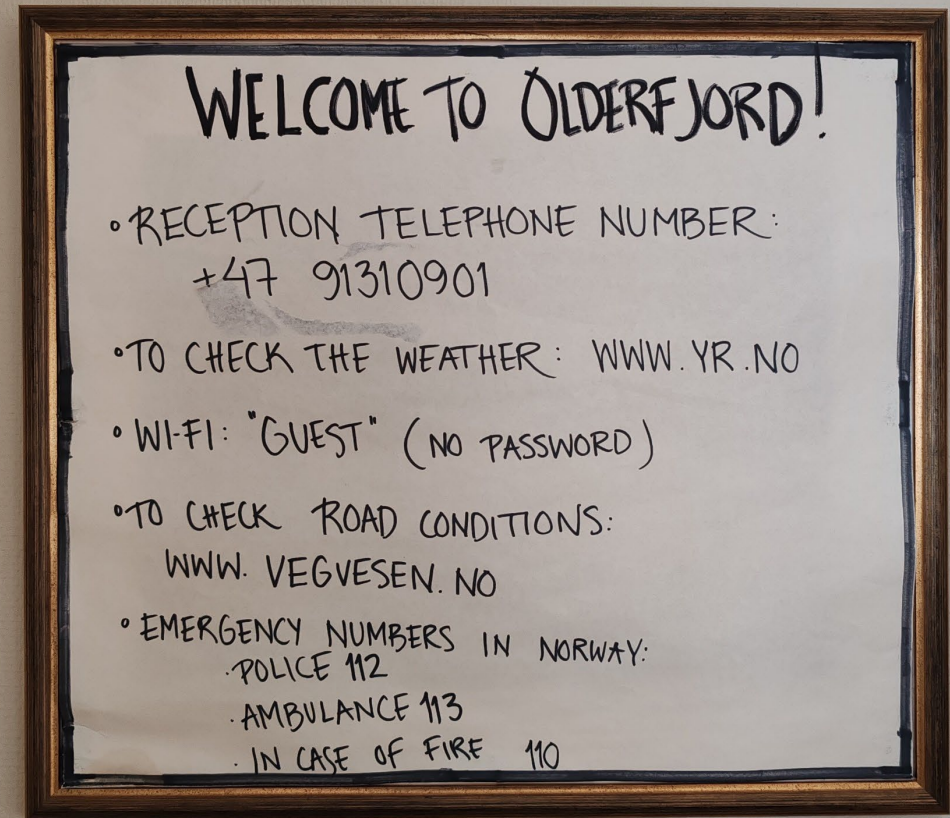 WELCOME TO OLDERFJORD!
• RECEPTION TELEPHONE NUMBER:
+47 91310901
• TO CHECK THE WEATHER: WWW.YR.NO
• WI-FI: "GUEST" (NO PASSWORD)
• TO CHECK ROAD CONDITIONS:
WWW.VEGVESEN.NO
• EMERGENCY NUMBERS IN NORWAY:
· POLICE 112
· AMBULANCE 113
· IN CASE OF FIRE 110